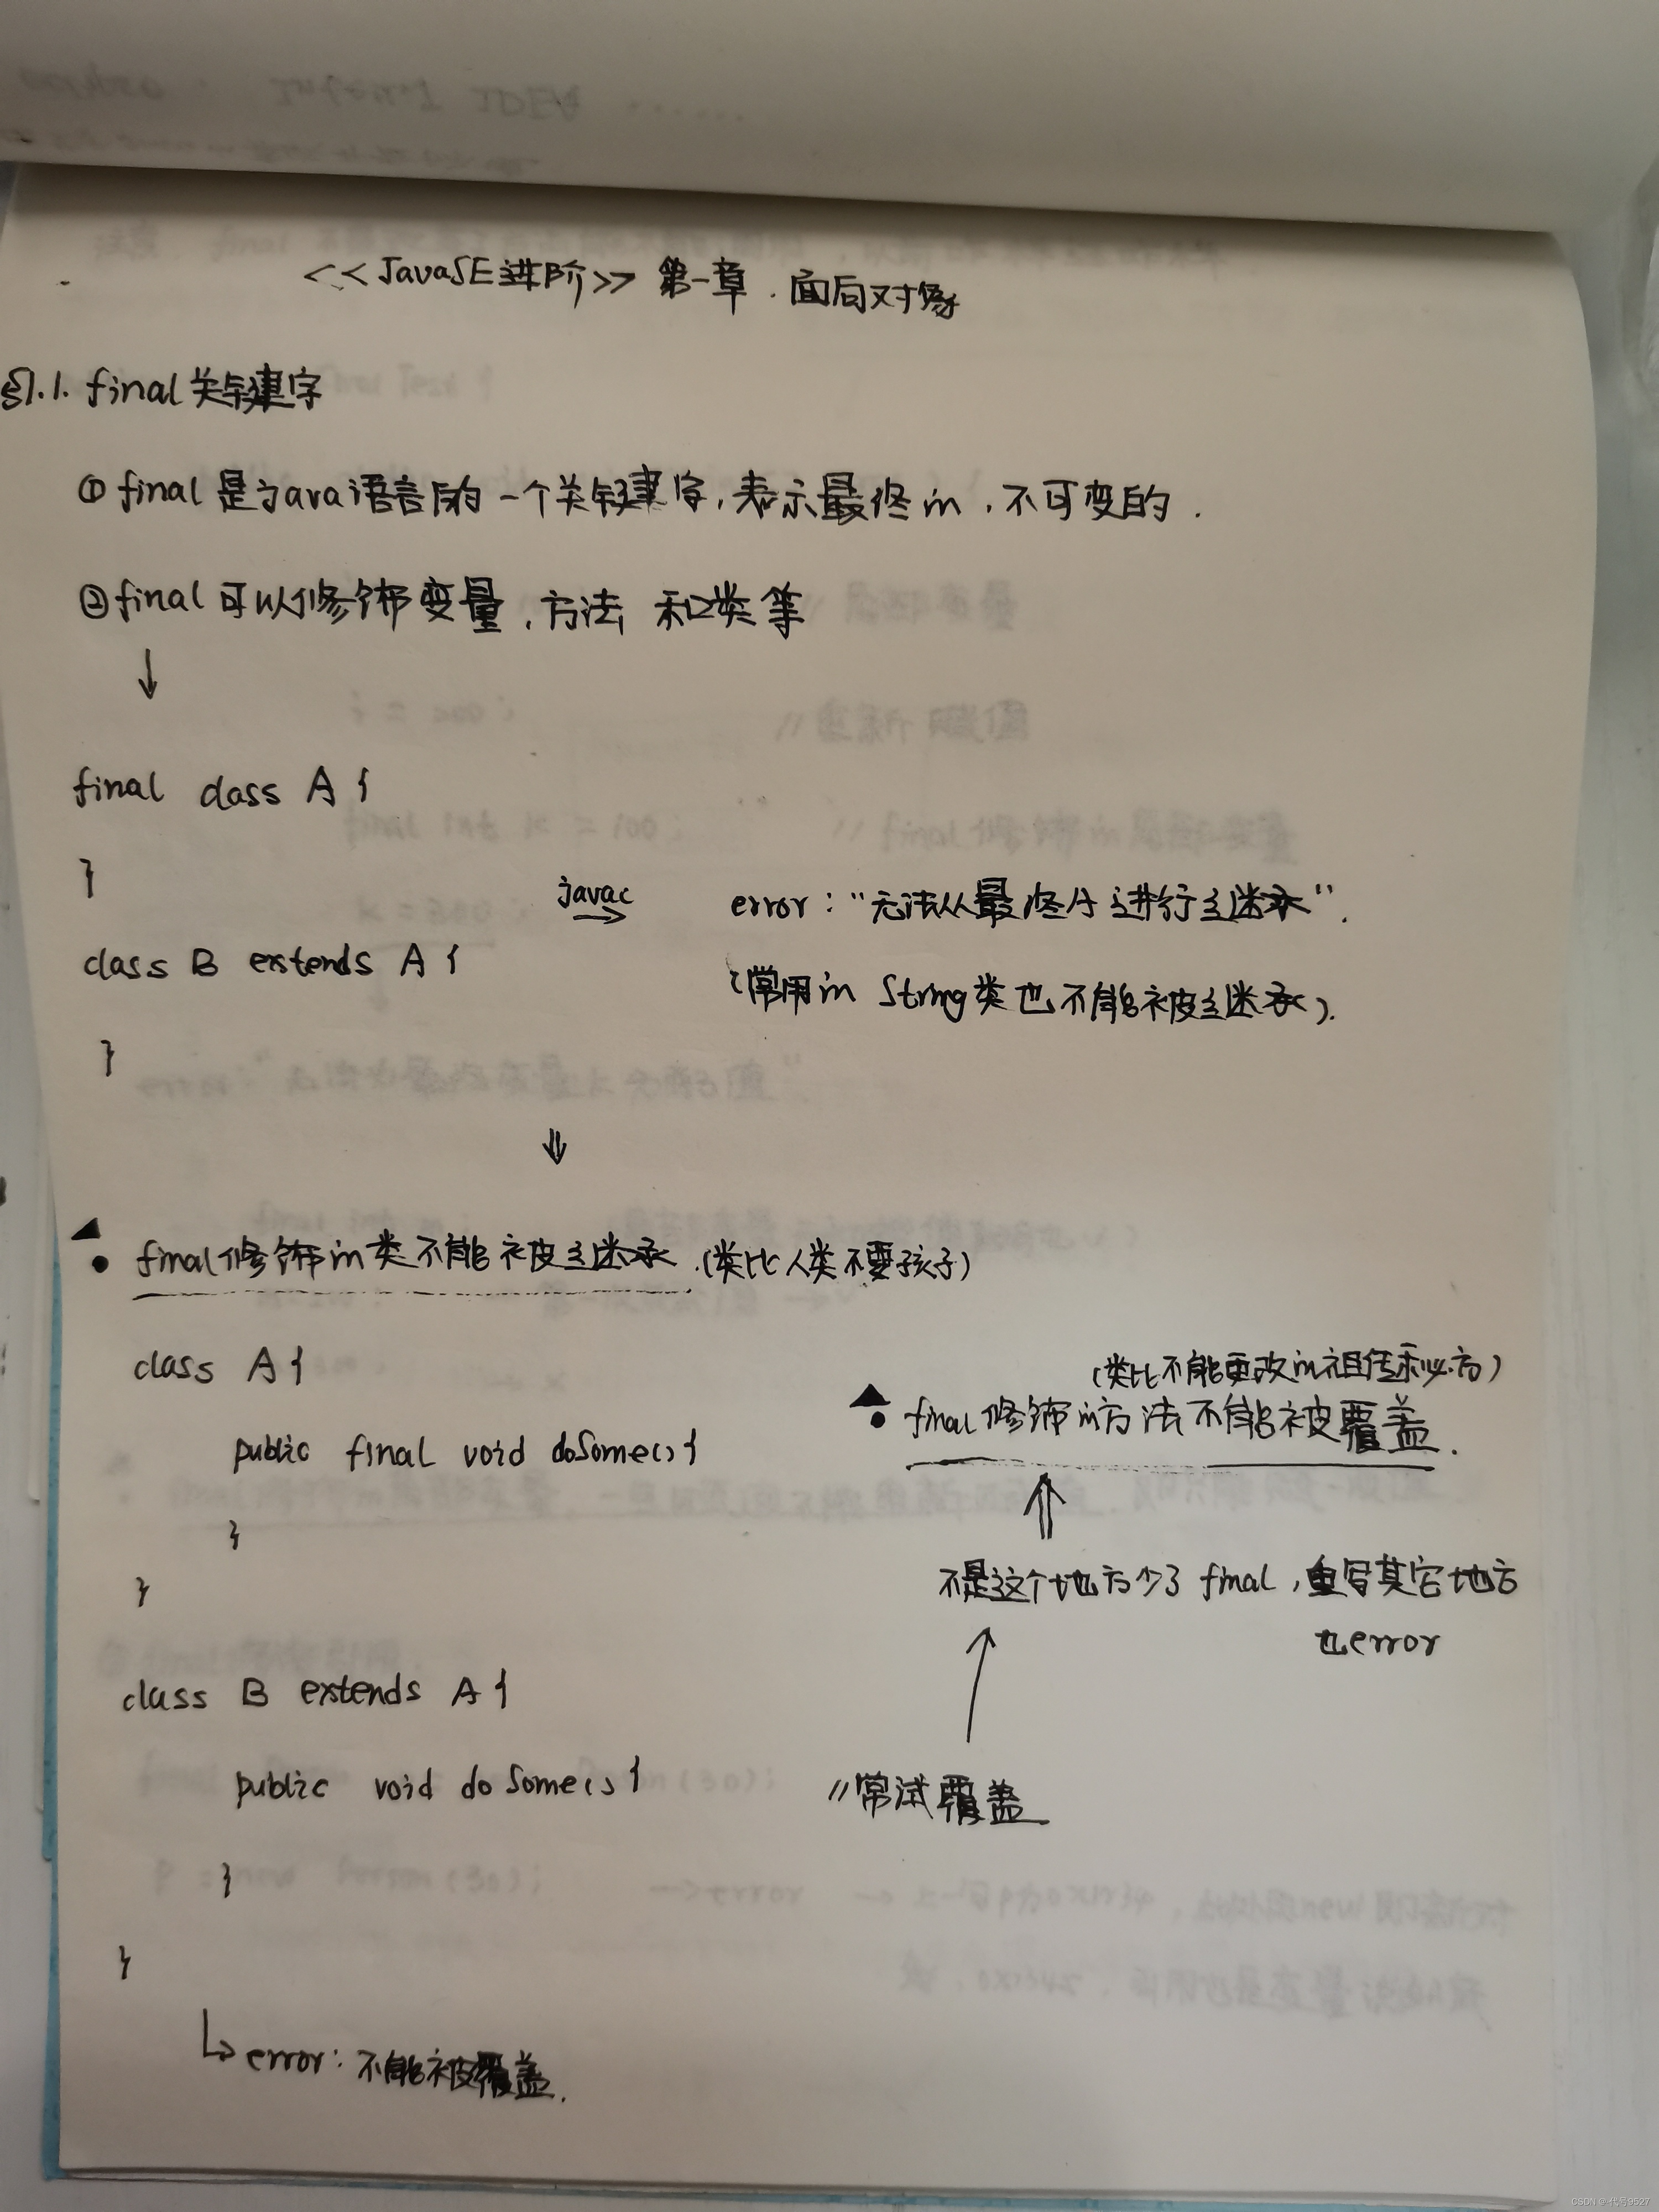 <<JavaSE进阶>> 第一章. 面向对象
§1.1. final关键字
① final是Java语言的一个关键字,表示最终in,不可变的.
②final可以修饰变量,方法,和类等
↓
final class A {
}
javac → error:"无法从最终A进行继承".
class B extends A {
(常用in String类也不能被继承).
}
⇓
final修饰in类不能被继承.(类比人类不要孩子)
class A {
(类比不能更改in祖传秘方)
final修饰in方法不能被覆盖.
public final void doSome() {
}
不是这个地方少了final,重写其它地方
也error
}
class B extends A {
public void doSome() {
//常试覆盖
}
}
↳ error: 不能被覆盖.
CSDN @代号9527